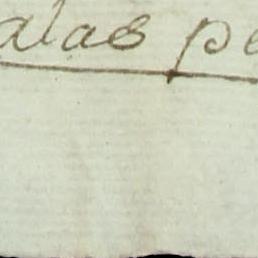 alas pe